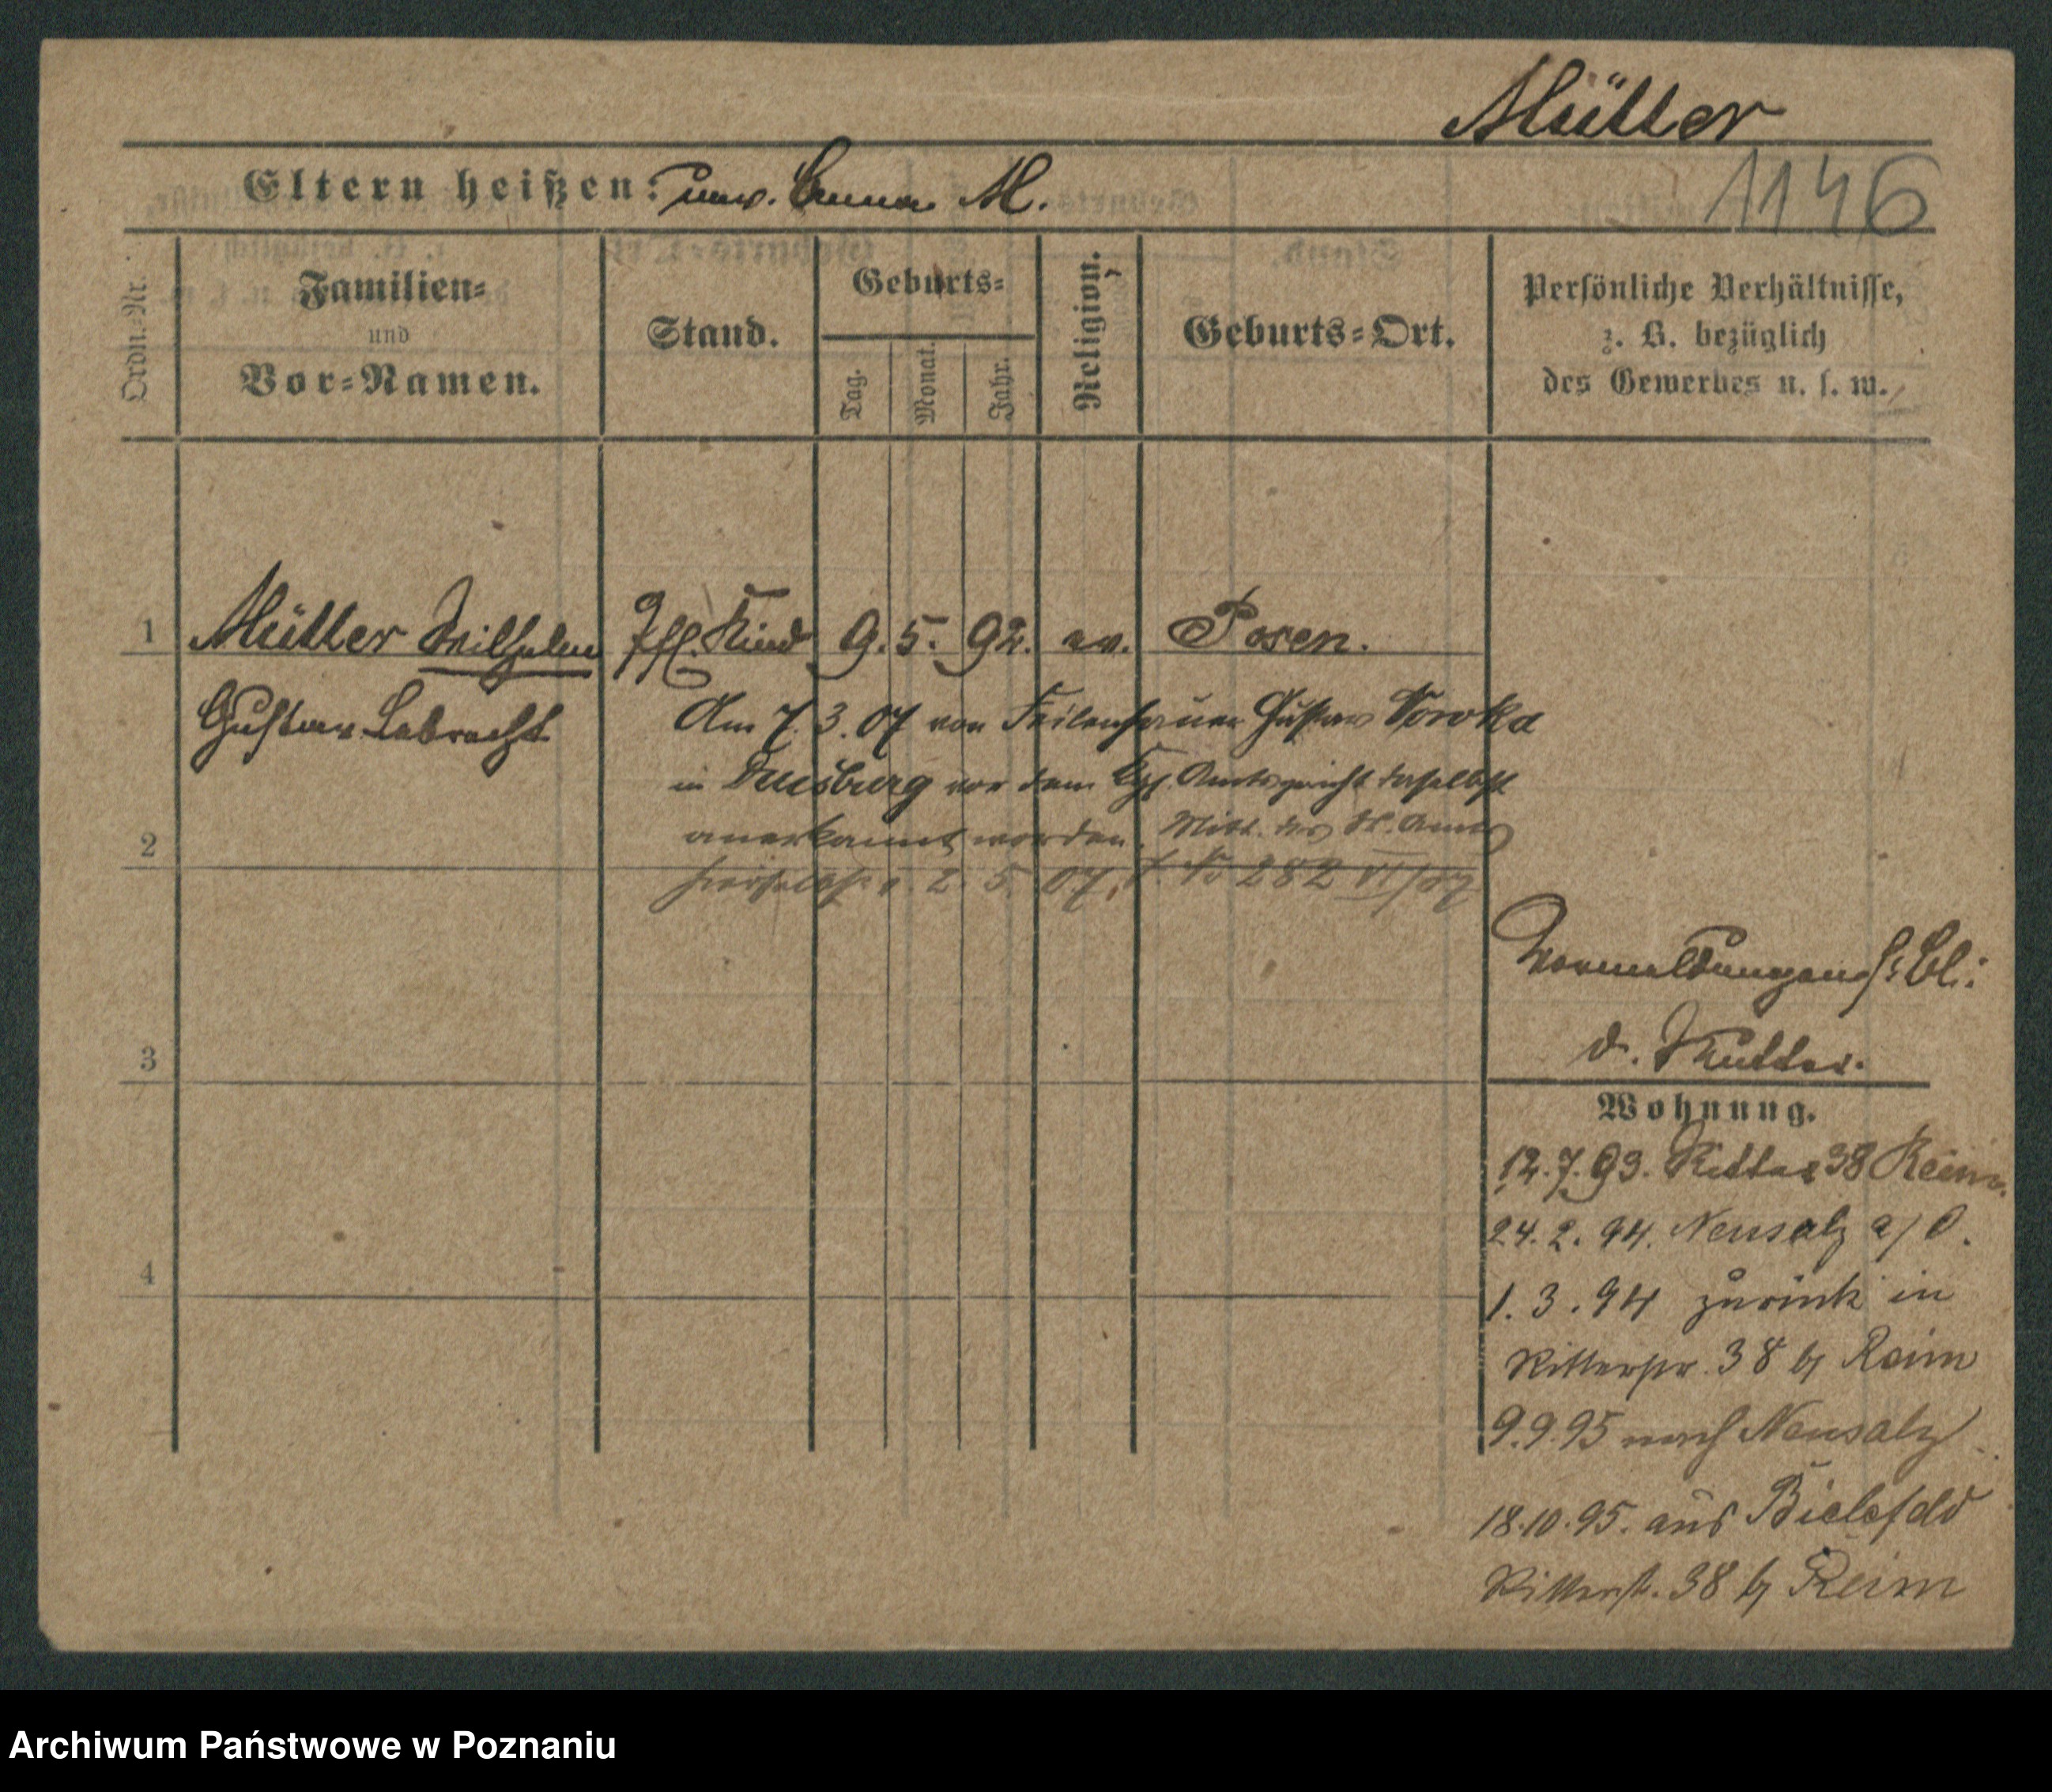 Müller
Eltern heißen: unv. Anna M.
1146
Ordn.-Nr.
Familien-
und
Vor-Namen.
Stand.
Geburts-
Tag.
Monat.
Jahr.
Religion.
Geburts-Ort.
Persönliche Verhältnisse,
z. B. bezüglich
des Gewerbes u. s. w.
1
Müller Wilhelm
Pfl. Kind
9. 5. 92.
ev.
Posen.
Gustav Lebrecht
Am 7. 3. 07 von Feilenhauer Gustav Worka
in Duisburg vor dem Kgl. Amtsgericht daselbst
2
anerkannt worden. Mitt. des St. Amts
hierselbst v. 2. 5. 07. No 282 VI/07
Vormeldungen s. Bl.
3
d. Mutter.
Wohnung.
12. 7. 93. Ritter 38 Reim
24. 2. 94. Neusalz a/O.
4
1. 3. 94 zurück in
Ritterstr. 38 b/ Reim
9. 9. 95 nach Neusalz
18. 10. 95. aus Bielefeld
Ritterst. 38 b/ Reim
Archiwum Państwowe w Poznaniu